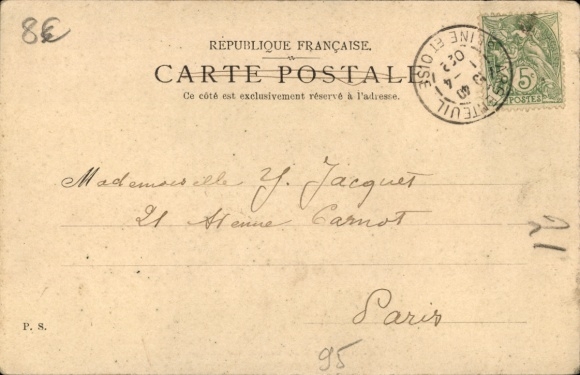 8€
RÉPUBLIQUE FRANÇAISE.
CARTE POSTALE
Ce côté est exclusivement réservé à l'adresse.
ARGENTEUIL
SEINE ET OISE
5c
POSTES
Mademoiselle Y. Jacquet
21 Avenue Carnot
21
Paris
P. S.
95